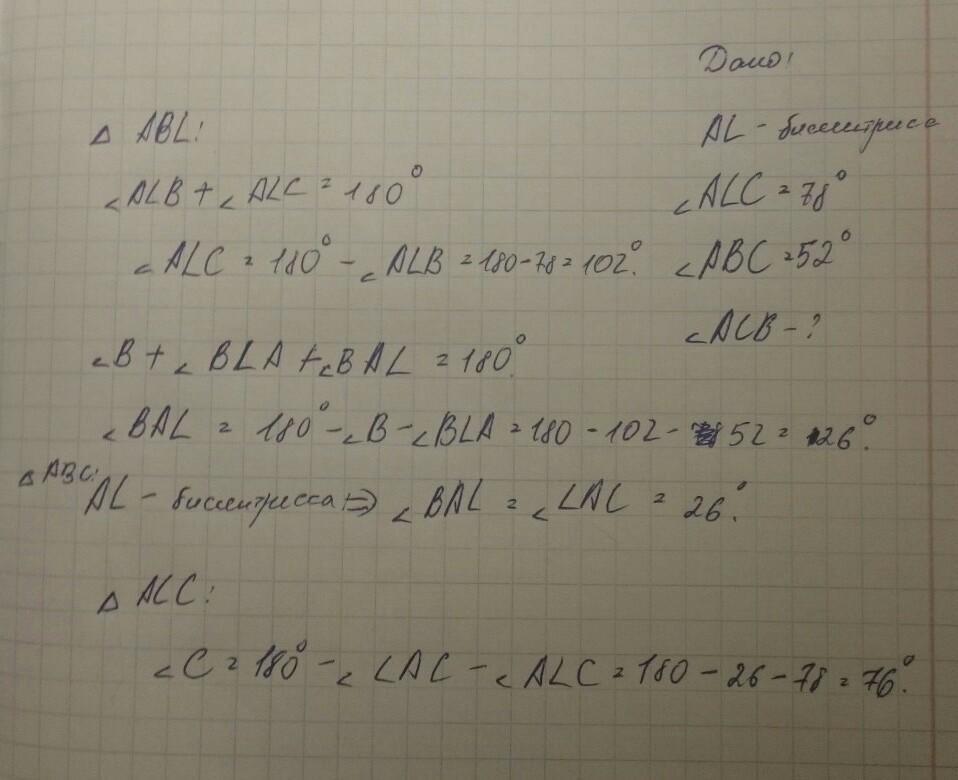 Дано:
AL - биссектриса
∠ALC = 78°
∠ABC = 52°
∠ACB - ?
Δ ABL:
∠ALB + ∠ALC = 180°
∠ALC = 180° - ∠ALB = 180-78 = 102°.
∠B + ∠BLA + ∠BAL = 180°.
∠BAL = 180° - ∠B - ∠BLA = 180 - 102 - 52 = 26°.
Δ ABC:
AL - биссектрисса => ∠BAL = ∠LAC = 26°.
Δ ALC:
∠C = 180° - ∠LAC - ∠ALC = 180 - 26 - 78 = 76°.